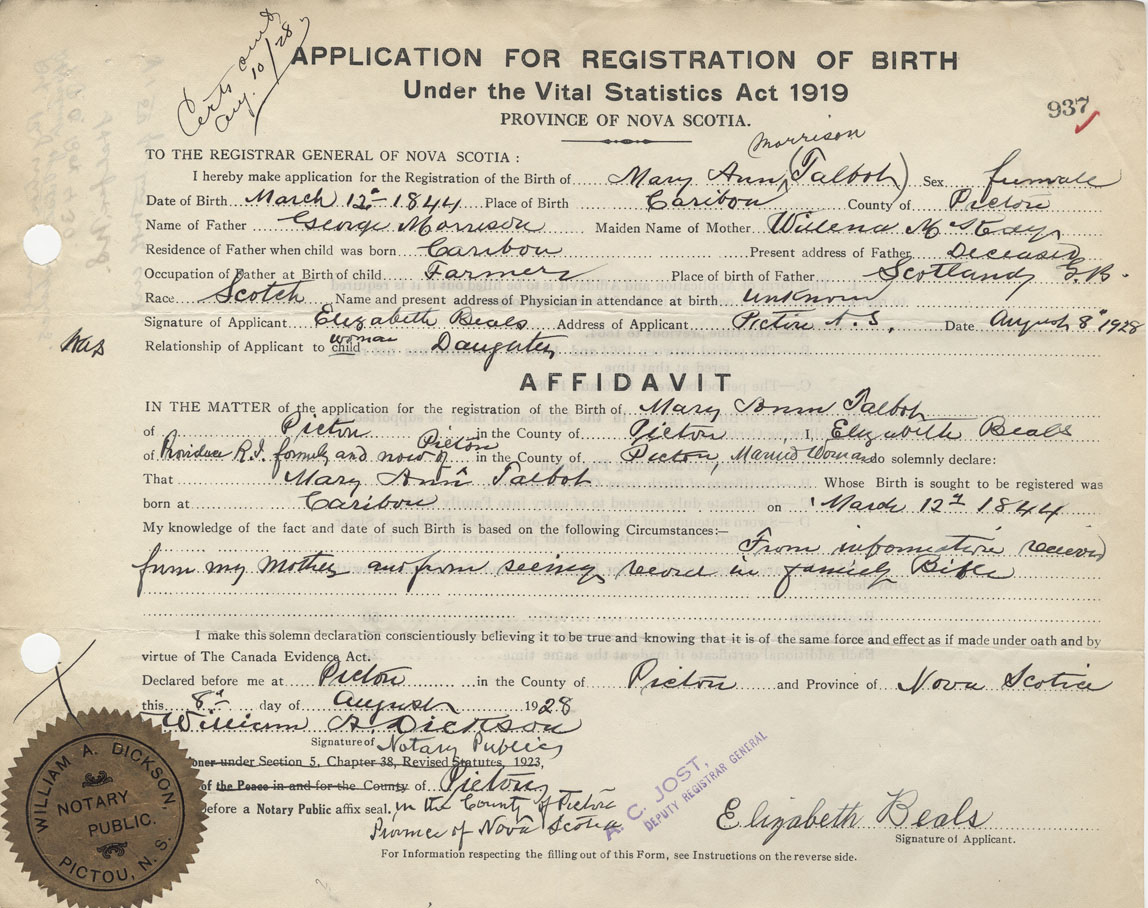 Certs and
Aug. 10/28
APPLICATION FOR REGISTRATION OF BIRTH
Under the Vital Statistics Act 1919
937
PROVINCE OF NOVA SCOTIA.
Morrison
TO THE REGISTRAR GENERAL OF NOVA SCOTIA :
I hereby make application for the Registration of the Birth of Mary Ann (Talbot) Sex female
Date of Birth March 12th 1844 Place of Birth Caribou County of Pictou
Name of Father George Morrison Maiden Name of Mother Willena
Residence of Father when child was born Caribou Present address of Father Deceased
Occupation of Father at Birth of child Farmer Place of birth of Father Scotland G.B.
Race Scotch Name and present address of Physician in attendance at birth unknown
Signature of Applicant Elizabeth Beals Address of Applicant Pictou N.S. Date August 8th 1928
was
woman
Relationship of Applicant to child Daughter
AFFIDAVIT
IN THE MATTER of the application for the registration of the Birth of Mary Ann Talbot
of Pictou in the County of Pictou, I, Elizabeth Beals
of Providence R.I. formerly and now of Pictou in the County of Pictou, Married Woman do solemnly declare:
That Mary Ann Talbot Whose Birth is sought to be registered was
born at Caribou on March 12th 1844
My knowledge of the fact and date of such Birth is based on the following Circumstances:—
From information received
from my Mother and from seeing record in family Bible
I make this solemn declaration conscientiously believing it to be true and knowing that it is of the same force and effect as if made under oath and by
virtue of The Canada Evidence Act.
Declared before me at Pictou in the County of Pictou and Province of Nova Scotia
this 8th day of August 1928
William A. Dickson
Signature of Notary Public
oner under Section 5, Chapter 38, Revised Statutes, 1923,
of the Peace in and for the County of Pictou
efore a Notary Public affix seal, in the County of Pictou
Province of Nova Scotia
A. C. JOST,
DEPUTY REGISTRAR GENERAL
Elizabeth Beals
Signature of Applicant.
For Information respecting the filling out of this Form, see Instructions on the reverse side.
WILLIAM A. DICKSON
NOTARY
PUBLIC.
PICTOU, N. S.